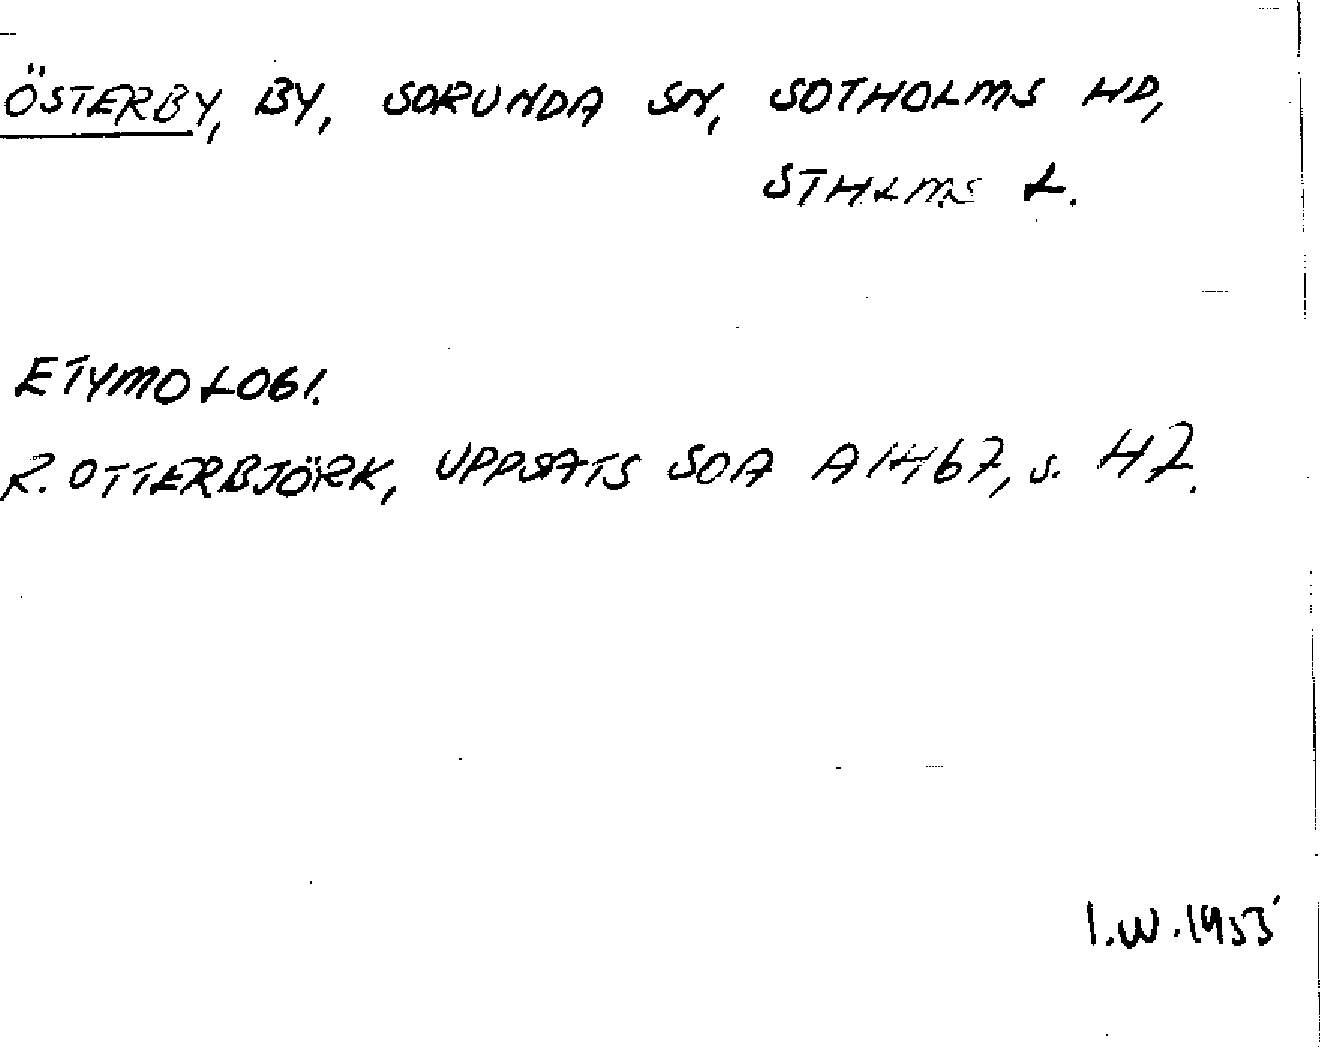 ÖSTERBY, BY, SORUNDA SN, SOTHOLMS HD,
STHLMS L.
ETYMOLOGI.
R. OTTERBJÖRK, UPPSATS SOA A1467, s. 42.
I.W. 1953